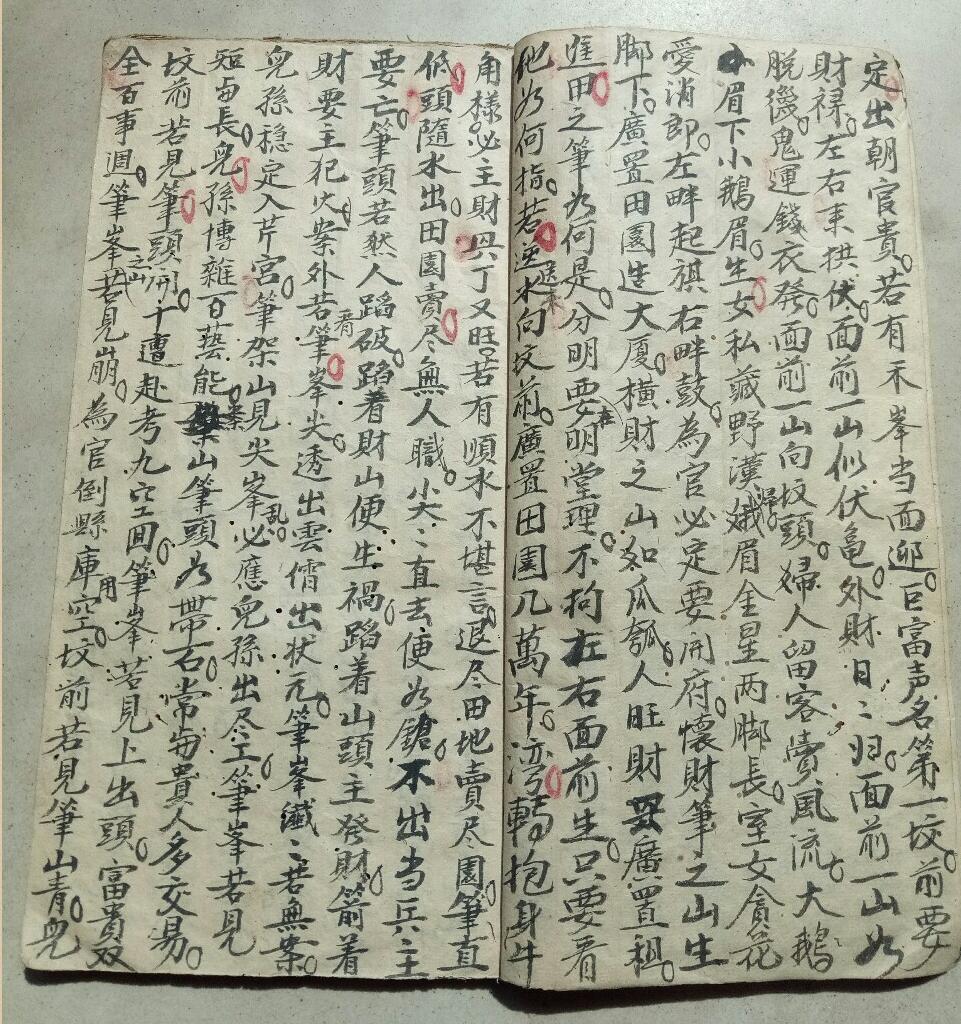 定出朝官貴若有禾峯当面迎巨富声名第一坟前要
財禄左右来拱伏面前一山似伏亀外財日〻归面前一山如
脱僊鬼運錢衣發面前一山向坟頭婦人留客賣風流大鵝
小眉下小鵝眉生女私藏野漢娥眉金星两脚長室女貪花
愛消郎左畔起旗右畔鼓為官必定要開府懐財筆之山生
脚下廣置田園造大厦橫財之山如瓜瓠人旺財興廣置租
進田之筆为何是分明要在明堂理不拘左右面前生只要看
他为何指若逆水向坟前廣置田園几萬年湾轉抱身牛
角様必主財興丁又旺若有順水不堪言退尽田地賣尽園筆直
低頭隨水出田園賣尽無人職尖〻直去便为鎗不出当兵主
要亡筆頭若然人蹈破蹈着財山便生禍蹈着山頭主發財箭着
財要主犯火案外若看筆峯尖透出雲僐出状元筆峯纖〻若無案
児孫稳定入芹宮筆架山見尖峯乱必應児孫出尽工筆峯若見
短与長児孫博雜百藝能案山筆頭为带石常与貴人多交易
坟前若見筆頭開十遭赴考九空囬筆峯若見上出頭富貴双
全百事週筆峯之山若見崩為官倒縣庫用空坟前若見筆山青児